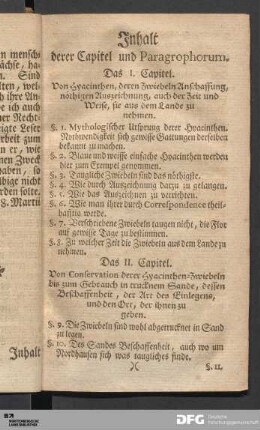 n mensch-
ächste, ha-
n. Sind
lten, wel-
ch ihre An-
be ich auch
ner Recht-
eigte Leser
rbeit zum
n er, wie
nen Zweck
aben, so
übige nicht
rden solte.
8. Martii
Inhalt
Inhalt
derer Capitel und Paragrophorum.
Das I. Capitel.
Von Hyacinthen, deren Zwiebeln Anschaffung,
nöthigen Auszeichnung, auch der Zeit und
Weise, sie aus dem Lande zu
nehmen.
§. 1. Mythologischer Ursprung derer Hyacinthen.
Nothwendigkeit sich gewisse Gattungen derselben
bekannt zu machen.
§. 2. Blaue und weisse einfache Hyacinthen werden
hier zum Exempel genommen.
§. 3. Taugliche Zwiebeln sind das nöthigste.
§. 4. Wie durch Auszeichnung darzu zu gelangen.
§. 5. Wie das Auszeichnen zu verrichten.
§. 6. Wie man ihrer durch Correspondence theil-
hafftig werde.
§. 7. Verschriebene Zwiebeln taugen nicht, die Flor
auf gewisse Tage zu bestimmen.
§. 8. Zu welcher Zeit die Zwiebeln aus dem Lande zu
nehmen.
Das II. Capitel.
Von Conservation derer Hyacinthen-Zwiebeln
bis zum Gebrauch in trucknem Sande, dessen
Beschaffenheit, der Art des Einlegens,
und den Ort, der ihnen zu
geben.
§. 9. Die Zwiebeln sind wohl abgetrucknet in Sand
zu legen.
§. 10. Des Sandes Beschaffenheit, auch wo um
Nordhausen sich was taugliches findt.
)( §. 11.
DFG Deutsche
Forschungsgemeinschaft